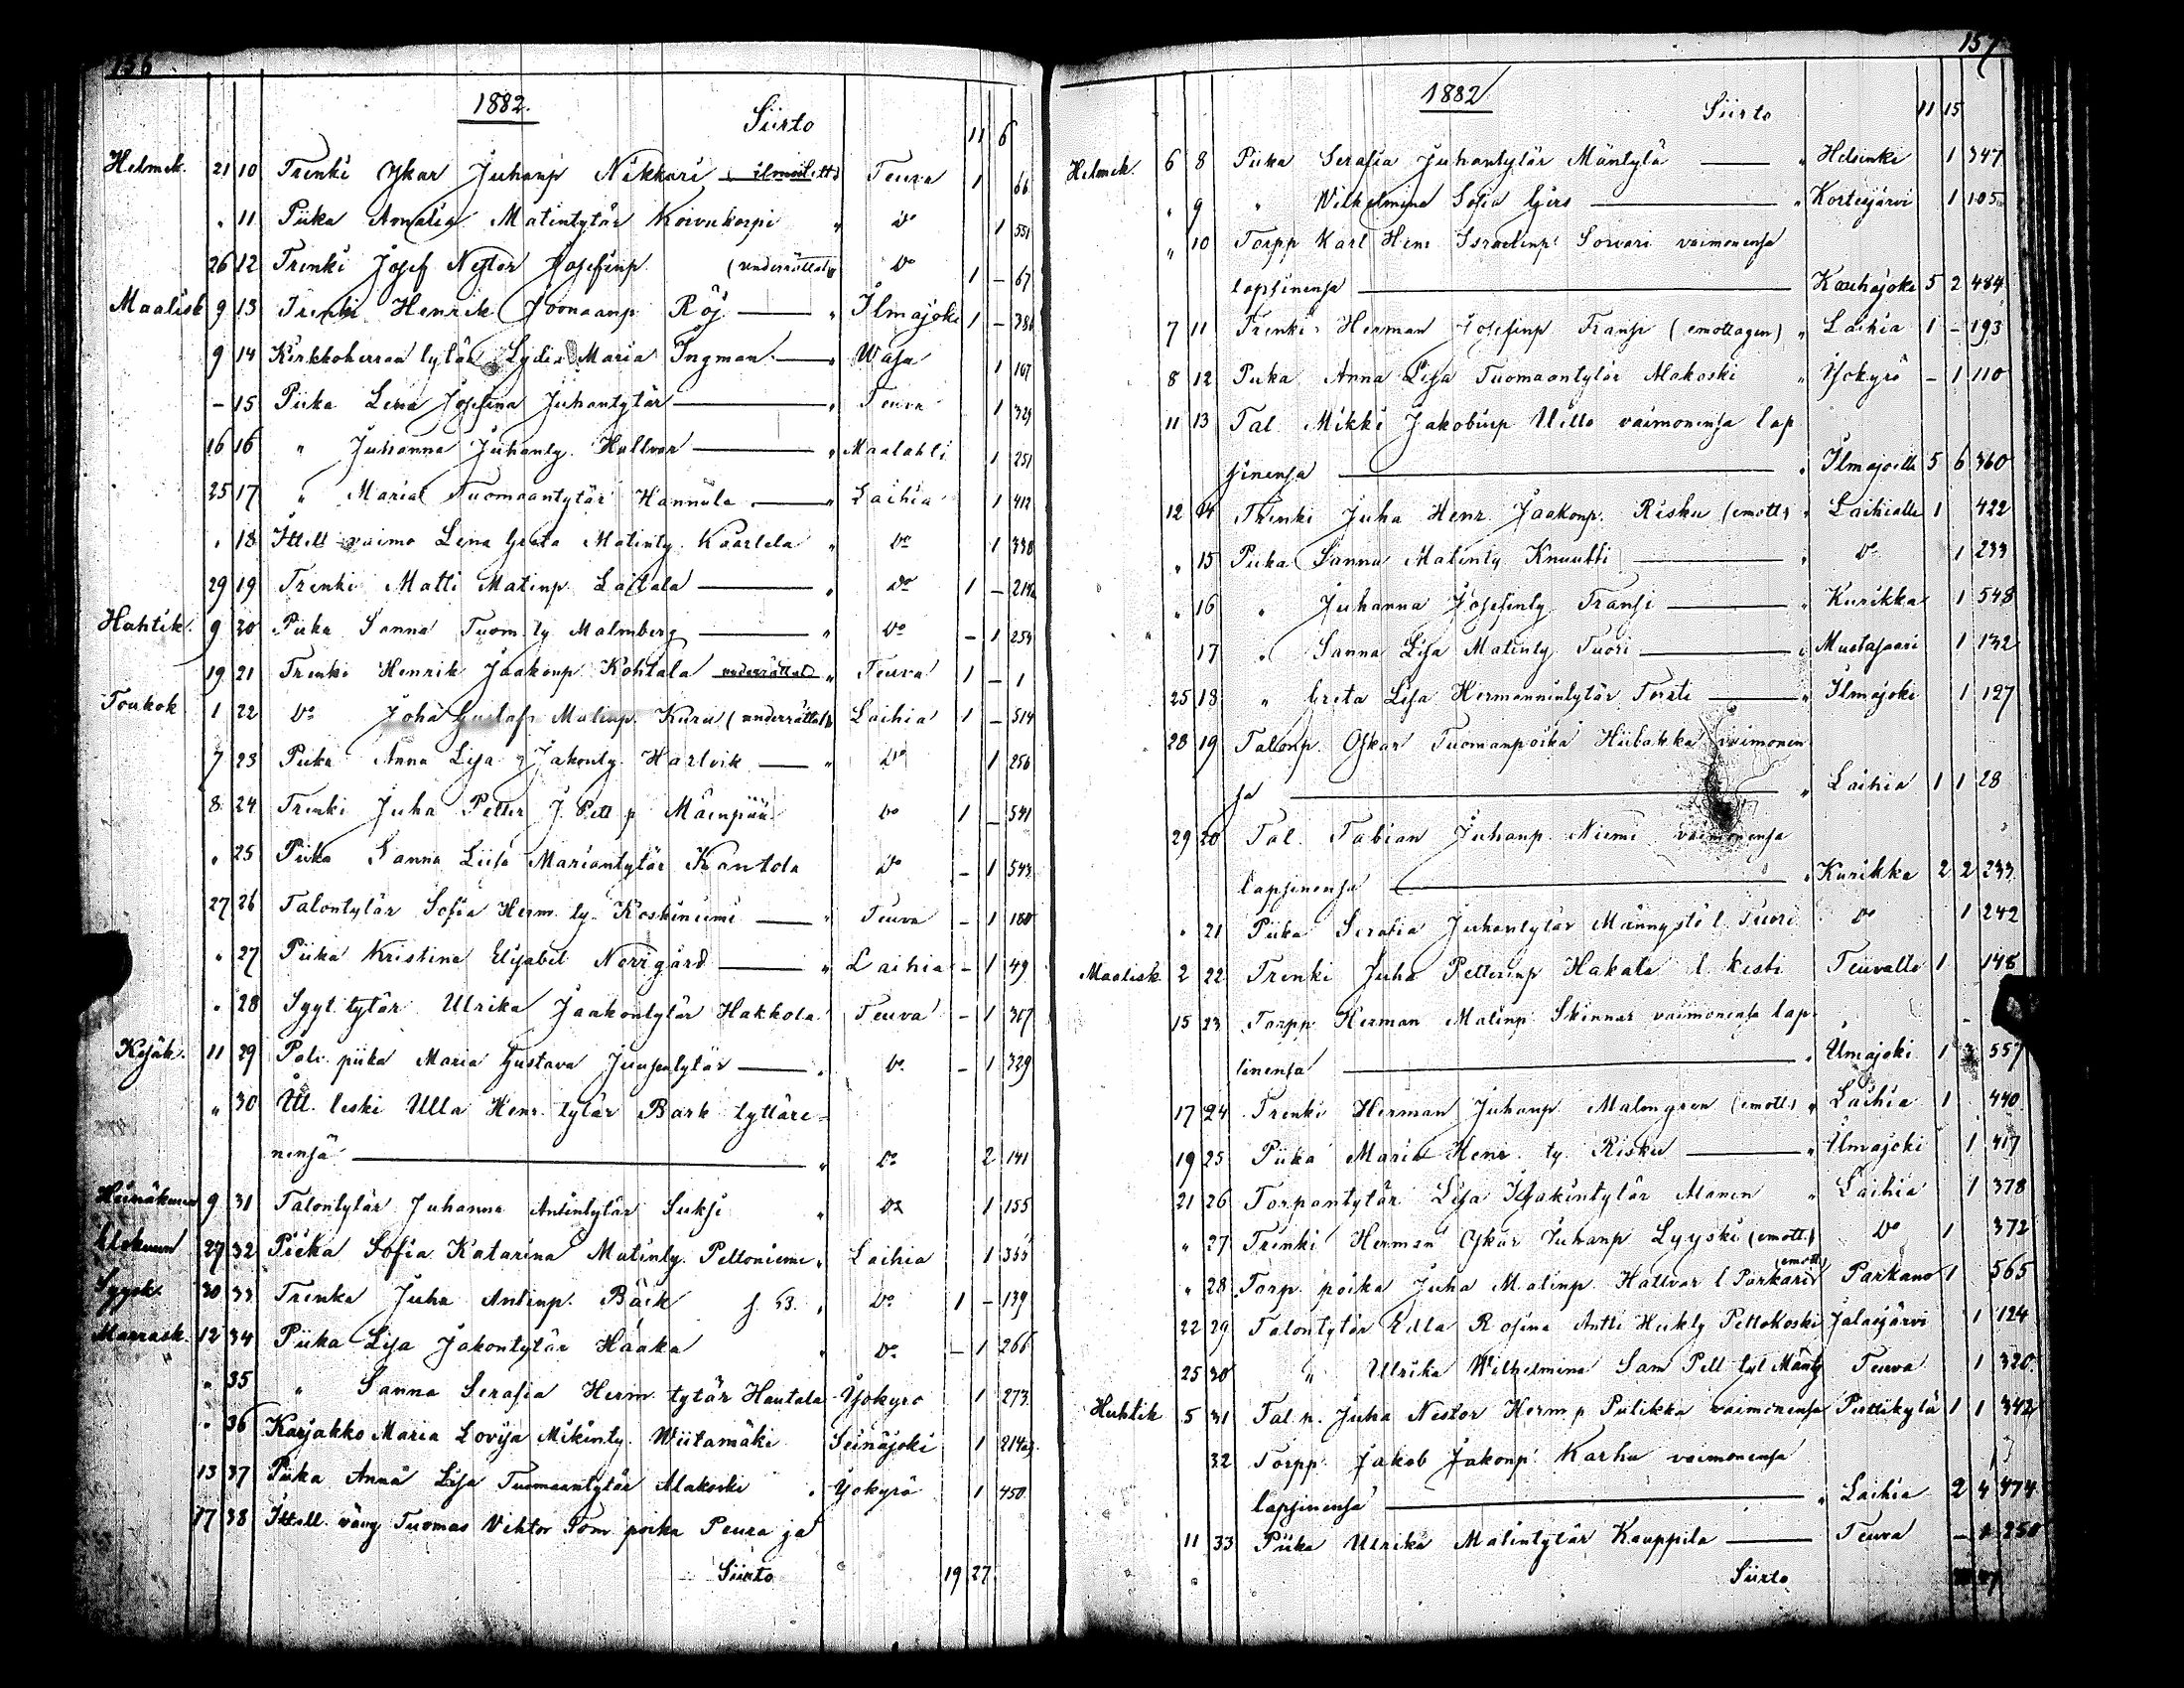 156
1882.
Siirto 11 6
Helmik. 21 10 Trenki Oskar Juhanp Nikkari (ilmoitett) Teuva 1 66
" 11 Piika Amalia Matintytär Koivukorpi " Do 1 551
26 12 Trenki Josef Nestor Josefinp (underrättat) Do 1 – 67
Maalisk 9 13 Trenki Henrik Joonaanp Röj " Ilmajoki 1 – 381
9 14 Kirkkoherran tytär Lydia Maria Ingman " Wasa 1 107
– 15 Piika Lena Josefina Juhantytär " Teuva 1 329
16 16 " Juhanna Juhanty. Hallvar " Maalahti 1 251
25 17 " Maria Tuomaantytär Hannula " Laihia 1 412
" 18 Ittell vaimo Lena Greta Matinty. Kaarlela " Do 1 338
29 19 Trenki Matti Matinp Laitala " Do 1 – 214
Huhtik. 9 20 Piika Sanna Tuom. ty Malmberg " Do – 1 254
19 21 Trenki Henrik Jaakonp Kohtala underrättad " Teuva 1 – 1
Toukok 1 22 Do Joha Gustaf Matinp. Kuru (underrättat) Laihia 1 – 514
7 23 Piika Anna Lisa Jakonty. Harlvik " Do 1 256
8 24 Trenki Juha Petter J. Pett p Mäenpää Do 1 – 541
" 25 Piika Sanna Liisa Mariantytär Kantola Do – 1 543
27 26 Talontytär Sofia Herm. ty. Koskiniemi " Teuva – 1 180
" 27 Piika Kristina Elisabet Norrgård " Laihia – 1 49
" 28 Sytyl. tytär Ulrika Jaakontytär Hakkola Teuva – 1 307
Kesäk. 11 29 Palv. piika Maria Gustava Juusentytär " Do – 1 329
" 30 Itt. leski Ulla Henr. tytär Bark tyttäre-
nensä " Do 2 141
Heinäkuun 9 31 Talontytär Juhanna Antintytär Suksi " Do 1 155
Elokuun 27 32 Piika Sofia Katarina Matinty. Peltoniemi " Laihia 1 355
Syysk. 30 33 Trenki Juha Antinp. Bäck f. 53. " Do 1 – 139
Marrask. 12 34 Piika Lisa Jakontytär Haaka " Do – 1 266
" 35 " Sanna Serafia Herm. tytär Hautala Ysokyrö 1 273
" 36 Karjakko Maria Lovisa Mikinty. Wiitamäki Seinäjoki 1 214
13 37 Piika Anna Lisa Tuomaantytär Alakoski " Ysokyrö 1 450
17 38 Ittell. väng Tuomas Vihtor Tom. poika Peura ja
Siirto 19 27
157
1882
Siirto 11 15
Helmik. 6 8 Piika Serafia Juhantytär Mäntylä " Helsinki 1 347
" 9 " Wilhelmina Sofia Gers " Kortesjärvi 1 105
" 10 Torpp Karl Henr Israelinp. Sorvari vaimonensa
lapsinensa Kauhajoki 5 2 484
7 11 Trenki Herman Josefinp Fransi (emottagen) " Laihia 1 – 193
8 12 Piika Anna Lisa Tuomaantytär Alakoski " Ysokyrö – 1 110
11 13 Tal. Mikki Jakobinp Uitto vaimonensa lap
sinensa " Ilmajoelle 5 6 360
12 14 Trenki Juha Henr. Jaakonp. Risku (emott) " Laihialle 1 422
" 15 Piika Sanna Matinty Knuutti " Do 1 233
" 16 " Juhanna Josefinty Fransi " Kurikka 1 548
17 " Sanna Lisa Matinty Tuori " Mustasaari 1 132
25 18 " Greta Lisa Hermannintytär Torsti " Ilmajoki 1 127
28 19 Talonp. Oskar Tuomanpoika Hiibakka vaimonen
sa " Laihia 1 1 28
29 20 Tal. Fabian Juhanp. Niemi vaimonensa
lapsinensa " Kurikka 2 2 233
" 21 Piika Serafia Juhantytär Männystö l. Tuori Do 1 242
Maalisk 2 22 Trenki Juha Petterinp Hakala l. Kesti Teuvalle 1 148
15 23 Torpp. Herman Matinp Skinnar vaimonensa lap
sinensa " Ilmajoki 1 557
17 24 Trenki Herman Juhanp Malmgren (emott.) " Laihia 1 440
19 25 Piika Maria Henr. ty. Risku " Ilmajoki 1 417
21 26 Torpantytär Lisa Isaakintytär Alanen " Laihia 1 378
" 27 Trenki Herman Oskar Juhanp Lyyski (emott.) Do 1 372
" 28 Torp. poika Juha Matinp. Hallvar l Parkari (emott) Parkano 1 565
22 29 Talontytär Edla Rosina Antti Heikty Peltokoski Jalasjärvi 1 124
25 30 " Ulrika Wilhelmina Sam Pell tyt Mänty Teuva 1 320
Huhtik 5 31 Tal. p. Juha Nestor Herm. p Pulikka vaimonensa Pirttikylä 1 1 342
32 Torpp. Jakob Jakonp Karhu vaimonensa
lapsinensa " Laihia 2 4 474
11 33 Piika Ulrika Matintytär Kauppila Teuva – 1 250
Siirto